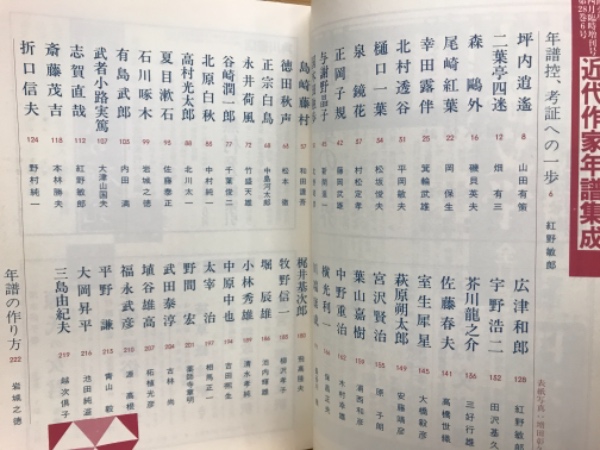 四月臨時増刊号
第28巻6号
近代作家年譜集成
年譜控、考証への一歩 6 紅野敏郎
坪内逍遥 8 山田有策
二葉亭四迷 12 畑有三
森鷗外 16 磯貝英夫
尾崎紅葉 22 岡保生
幸田露伴 25 箕輪武雄
北村透谷 31 平岡敏夫
樋口一葉 34 松坂俊夫
泉鏡花 37 村松定孝
正岡子規 42 藤岡
与謝野
島崎藤村 57 和田謹吾
徳田秋声 65 松本徹
正宗白鳥 68 中島河太郎
永井荷風 72 竹盛天雄
谷崎潤一郎 77 千葉俊二
北原白秋 85 中村純一
高村光太郎 88 北川太一
夏目漱石 95 佐藤泰正
石川啄木 99 岩城之徳
有島武郎 105 内田満
武者小路実篤 107 大津山国夫
志賀直哉 112 紅野敏郎
斎藤茂吉 118 本林勝夫
折口信夫 124 野村純一
広津和郎 128 紅野敏郎
宇野浩二 132 田沢基久
芥川龍之介 136 三好行雄
佐藤春夫 141 高橋世織
室生犀星 145 大橋毅彦
萩原朔太郎 149 安藤靖彦
宮沢賢治 154 原子朗
葉山嘉樹 158 浦西和彦
中野重治 木村幸雄
横光利一 保昌正夫
梶井基次郎
牧野信一 柳沢孝子
堀辰雄 186 池内輝雄
小林秀雄 189 清水孝純
中原中也 194 吉田凞生
太宰治 相馬正一
野間宏 201 薬師寺章明
武田泰淳 204 古林尚
埴谷雄高 207 柘植光彦
福永武彦 210 源高根
平野謙 215 青山毅
大岡昇平 216 池田純溢
三島由紀夫 219 越次倶子
年譜の作り方 222 岩城之徳
表紙写真・増田彰久